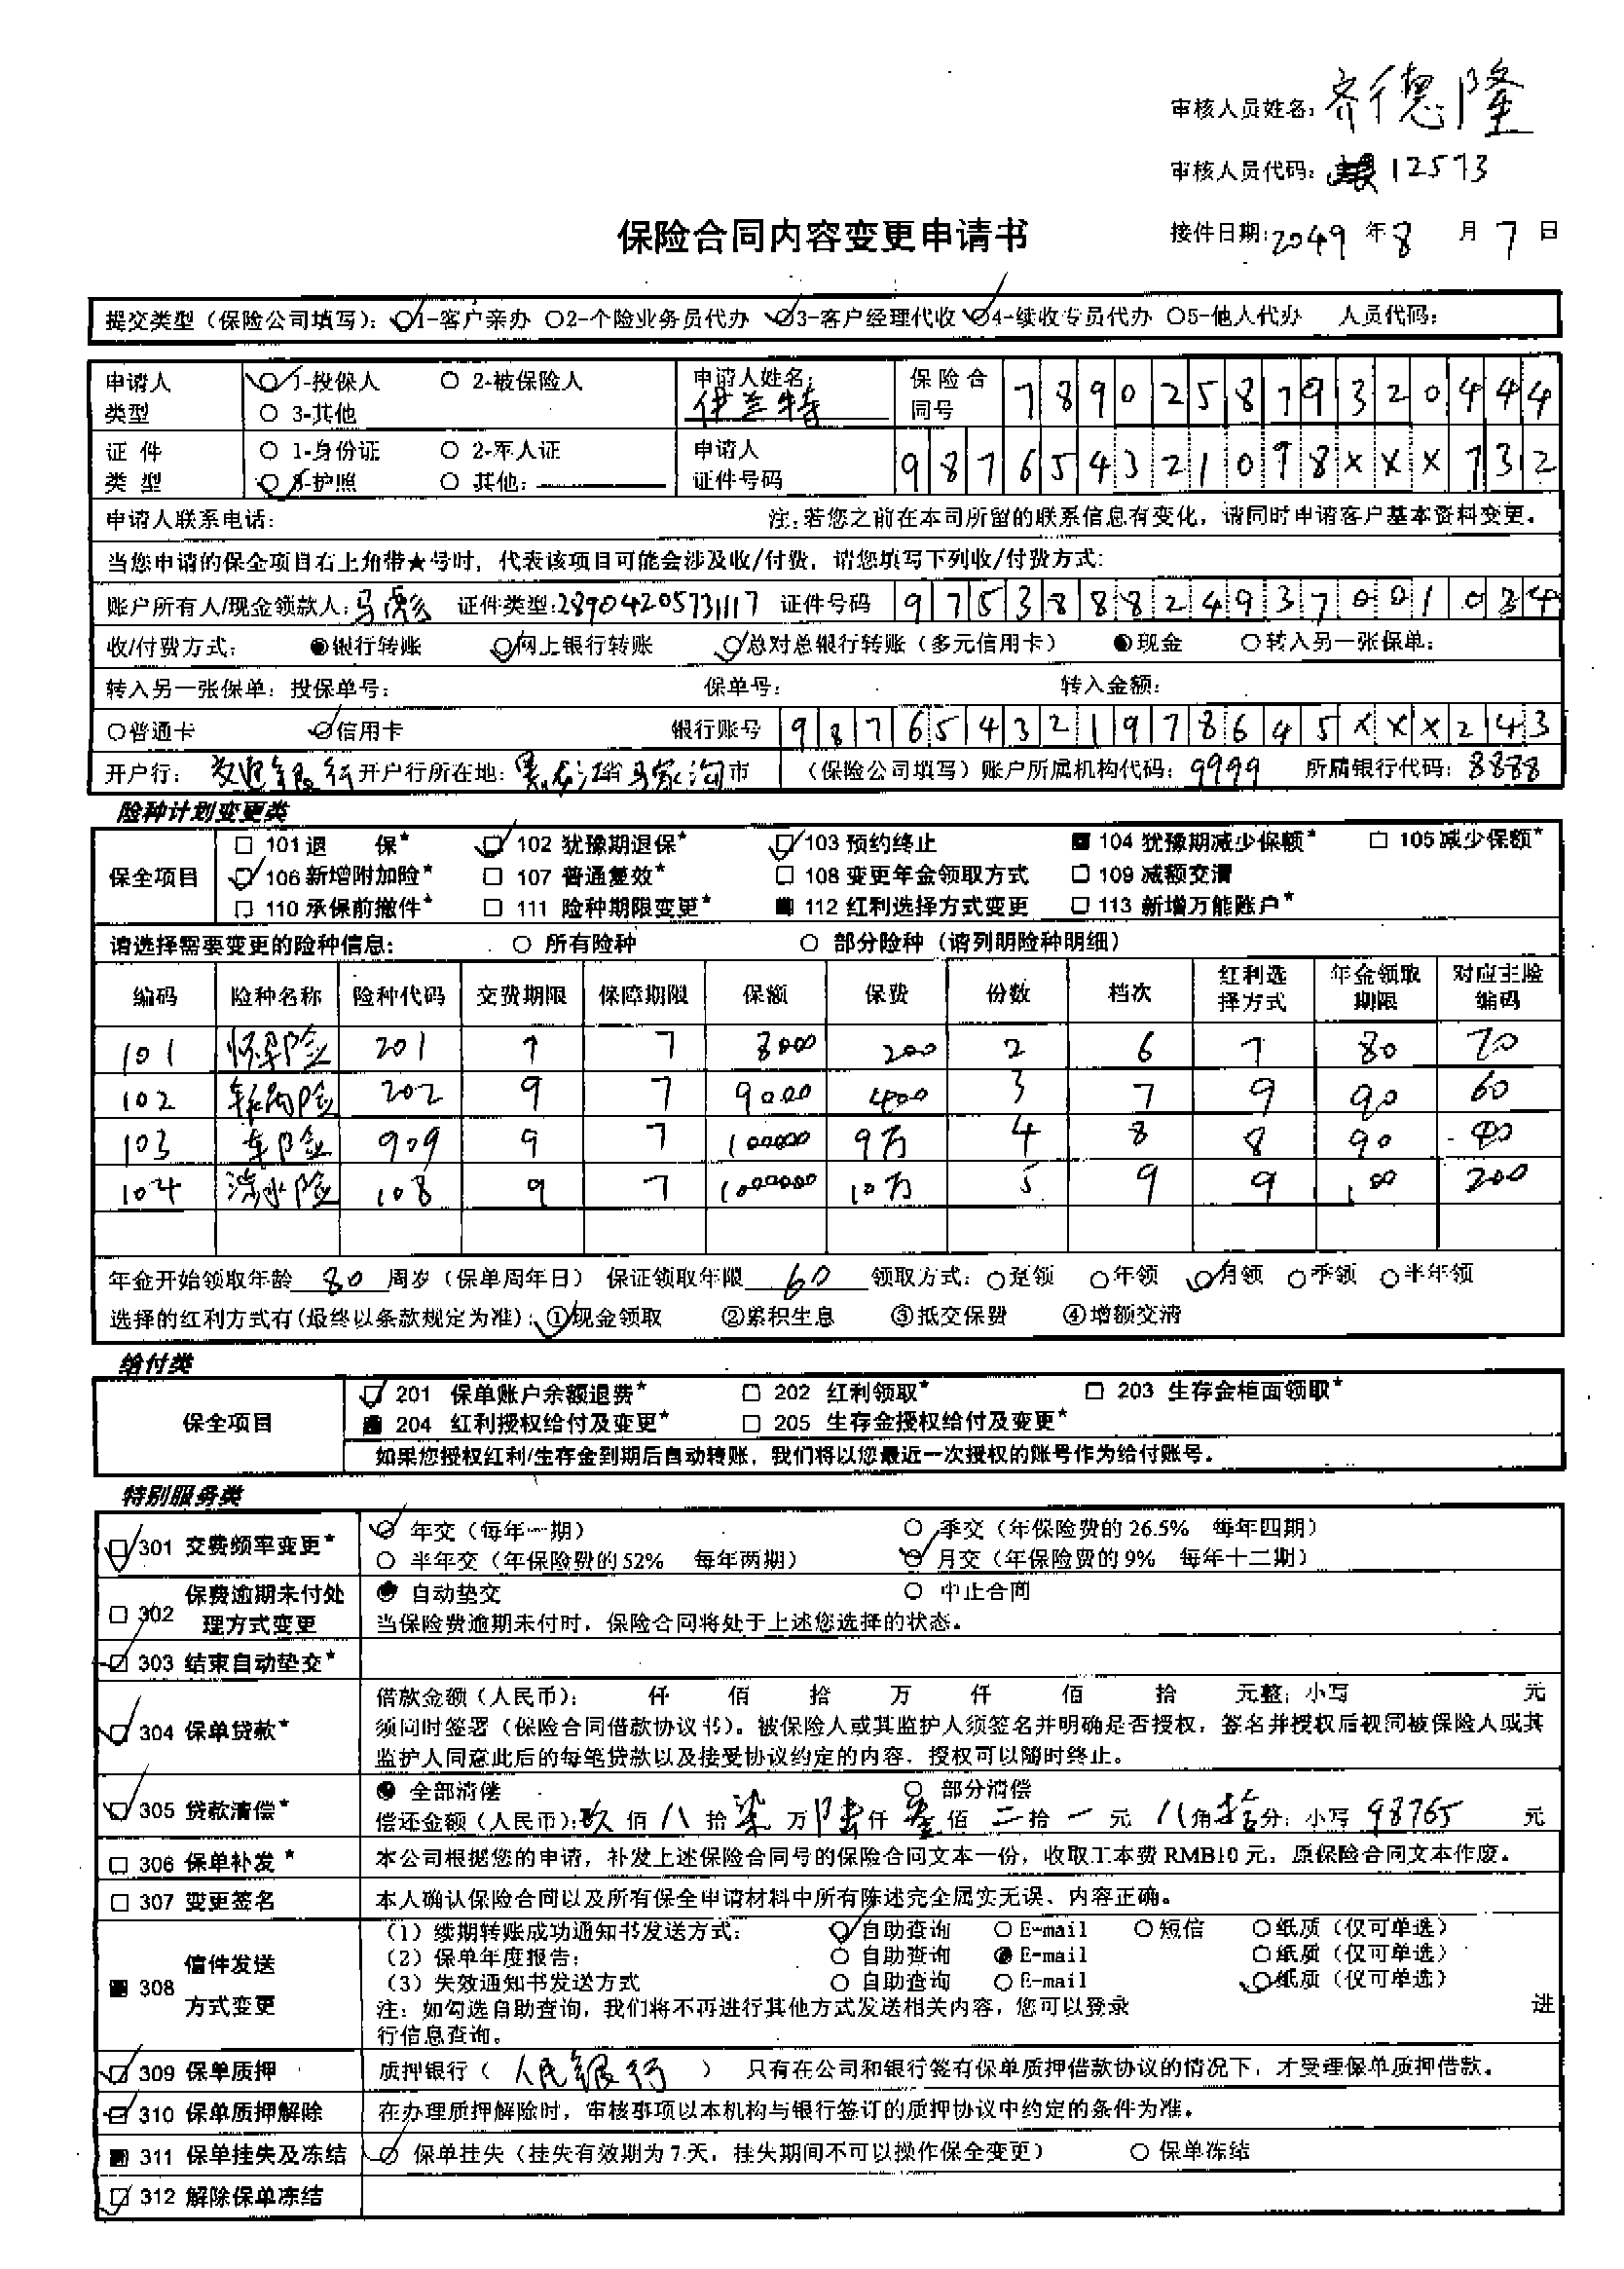 审核人员姓名：齐德隆
审核人员代码：12573
保险合同内容变更申请书
接件日期：2049年8月7日
提交类型（保险公司填写）：○1-客户亲办 ○2-个险业务员代办 ○3-客户经理代收 ○4-续收专员代办 ○5-他人代办 人员代码：
申请人类型 ○1-投保人 ○2-被保险人 ○3-其他 申请人姓名：伊兰特 保险合同号 789025879320444
证件类型 ○1-身份证 ○2-军人证 ○3-护照 ○其他： 申请人证件号码 98765432109 8XXX732
申请人联系电话： 注：若您之前在本司所留的联系信息有变化，请同时申请客户基本资料变更。
当您申请的保全项目右上角带★号时，代表该项目可能会涉及收/付费，请您填写下列收/付费方式：
账户所有人/现金领款人：马 证件类型：28904205731117 证件号码 975388824937001034
收/付费方式： ●银行转账 ○网上银行转账 ○总对总银行转账（多元信用卡） ●现金 ○转入另一张保单：
转入另一张保单：投保单号： 保单号： 转入金额：
○普通卡 ○信用卡 银行账号 987654321978645XXX243
开户行：发电银行 开户行所在地：黑龙江省马家沟市 （保险公司填写）账户所属机构代码：9999 所属银行代码：8888
险种计划变更类
保全项目
□ 101 退 保★ □ 102 犹豫期退保★ □ 103 预约终止 ■ 104 犹豫期减少保额★ □ 105 减少保额★
□ 106 新增附加险★ □ 107 普通复效★ □ 108 变更年金领取方式 □ 109 减额交清
□ 110 承保前撤件★ □ 111 险种期限变更★ ■ 112 红利选择方式变更 □ 113 新增万能账户★
请选择需要变更的险种信息： ○ 所有险种 ○ 部分险种（请列明险种明细）
编码 险种名称 险种代码 交费期限 保障期限 保额 保费 份数 档次 红利选择方式 年金领取期限 对应主险编码
101 怀孕险 201 7 7 8000 200 2 6 7 80 70
102 车祸险 202 9 7 9000 400 3 7 9 90 60
103 车险 909 9 7 100000 9万 4 8 8 90 80
104 涉水险 108 9 7 1000000 10万 5 9 9 100 200
年金开始领取年龄 80 周岁（保单周年日） 保证领取年限 60 领取方式：○趸领 ○年领 ○月领 ○季领 ○半年领
选择的红利方式有（最终以条款规定为准）：①现金领取 ②累积生息 ③抵交保费 ④增额交清
给付类
保全项目
□ 201 保单账户余额退费★ □ 202 红利领取★ □ 203 生存金柜面领取★
■ 204 红利授权给付及变更★ □ 205 生存金授权给付及变更★
如果您授权红利/生存金到期后自动转账，我们将以您最近一次授权的账号作为给付账号。
特别服务类
□ 301 交费频率变更★ ○ 年交（每年一期） ○ 季交（年保险费的26.5% 每年四期）
○ 半年交（年保险费的52% 每年两期） ○ 月交（年保险费的9% 每年十二期）
□ 302 保费逾期未付处理方式变更 ● 自动垫交 ○ 中止合同
当保险费逾期未付时，保险合同将处于上述您选择的状态。
□ 303 结束自动垫交★
□ 304 保单贷款★ 借款金额（人民币）： 仟 佰 拾 万 仟 佰 拾 元整；小写 元
须同时签署（保险合同借款协议书）。被保险人或其监护人须签名并明确是否授权，签名并授权后视同被保险人或其
监护人同意此后的每笔贷款以及接受协议约定的内容，授权可以随时终止。
□ 305 贷款清偿★ ● 全部清偿 ○ 部分清偿
偿还金额（人民币）：玖佰八拾柒万陆仟叁佰二拾一元八角拾分；小写 98765 元
□ 306 保单补发★ 本公司根据您的申请，补发上述保险合同号的保险合同文本一份，收取工本费RMB10元，原保险合同文本作废。
□ 307 变更签名 本人确认保险合同以及所有保全申请材料中所有陈述完全属实无误、内容正确。
■ 308 信件发送方式变更
（1）续期转账成功通知书发送方式： ○ 自助查询 ○ E-mail ○ 短信 ○ 纸质（仅可单选）
（2）保单年度报告： ○ 自助查询 ● E-mail ○ 纸质（仅可单选）
（3）失效通知书发送方式 ○ 自助查询 ○ E-mail ○ 纸质（仅可单选）
注：如勾选自助查询，我们将不再进行其他方式发送相关内容，您可以登录 进
行信息查询。
□ 309 保单质押 质押银行（ 人民银行 ） 只有在公司和银行签有保单质押借款协议的情况下，才受理保单质押借款。
□ 310 保单质押解除 在办理质押解除时，审核事项以本机构与银行签订的质押协议中约定的条件为准。
■ 311 保单挂失及冻结 ○ 保单挂失（挂失有效期为7天，挂失期间不可以操作保全变更） ○ 保单冻结
□ 312 解除保单冻结